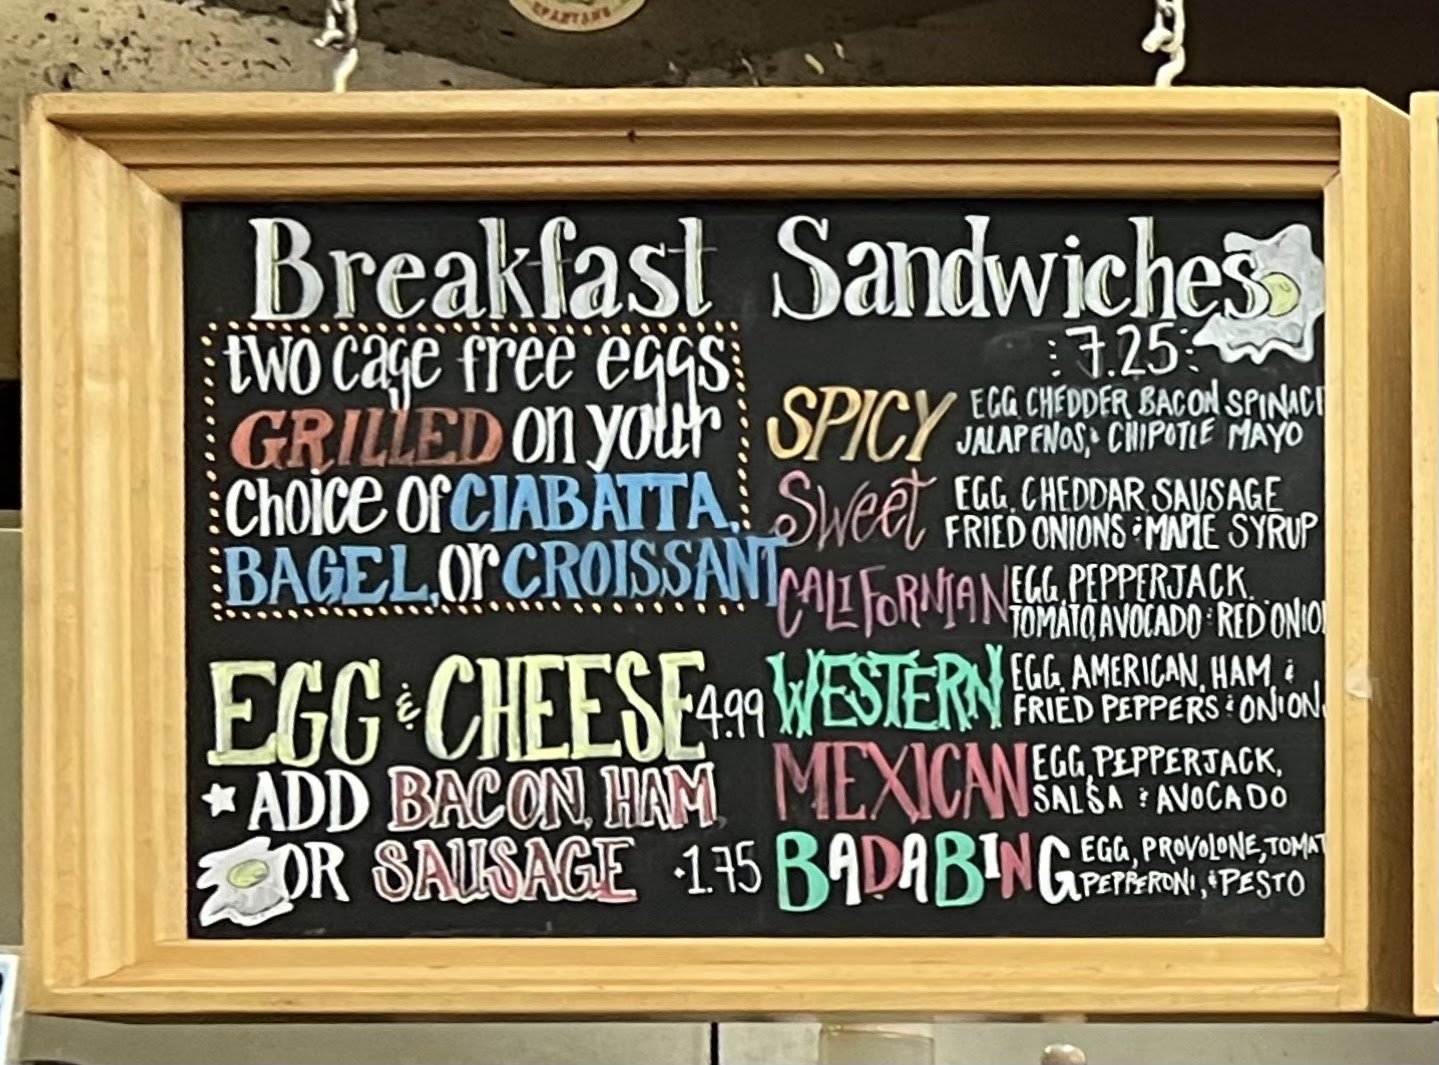 Breakfast Sandwiches
two cage free eggs
GRILLED on your
choice of CIABATTA,
BAGEL, or CROISSANT
EGG & CHEESE 4.99
ADD BACON, HAM,
OR SAUSAGE +1.75
7.25
SPICY EGG, CHEDDER BACON SPINAC
JALAPENOS, & CHIPOTLE MAYO
Sweet EGG, CHEDDAR, SAUSAGE
FRIED ONIONS & MAPLE SYRUP
CALIFORNIAN EGG, PEPPERJACK,
TOMATO, AVOCADO & RED ONIO
WESTERN EGG, AMERICAN, HAM, &
FRIED PEPPERS & ONION
MEXICAN EGG, PEPPERJACK,
SALSA & AVOCADO
BADABING EGG, PROVOLONE, TOMAT
PEPPERONI, & PESTO